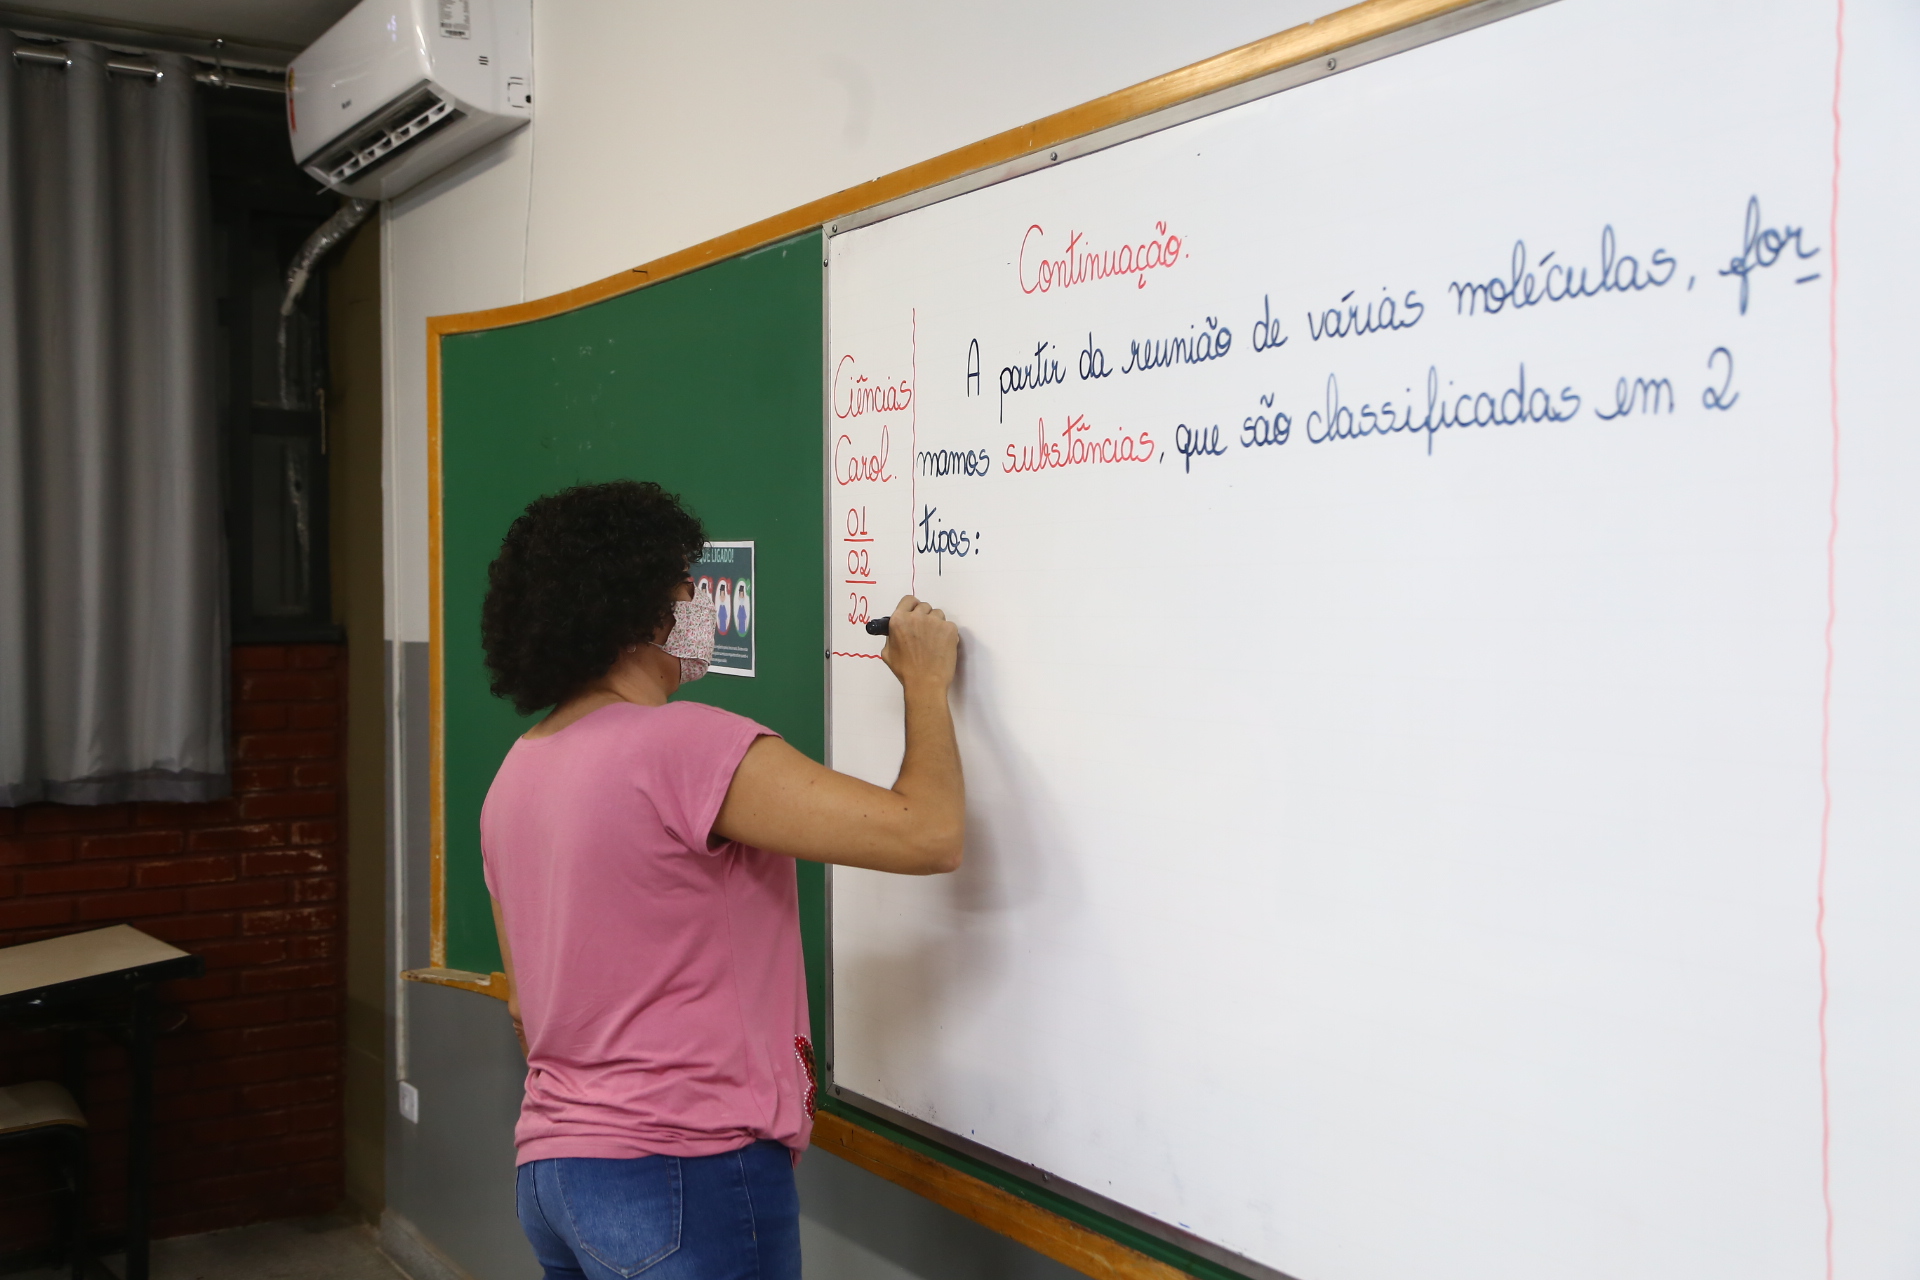 Continuação:
Ciências
Carol.
01
02
22
A partir da reunião de várias moléculas, for
mamos substâncias, que são classificadas em 2
tipos:
QUE LIGADO!